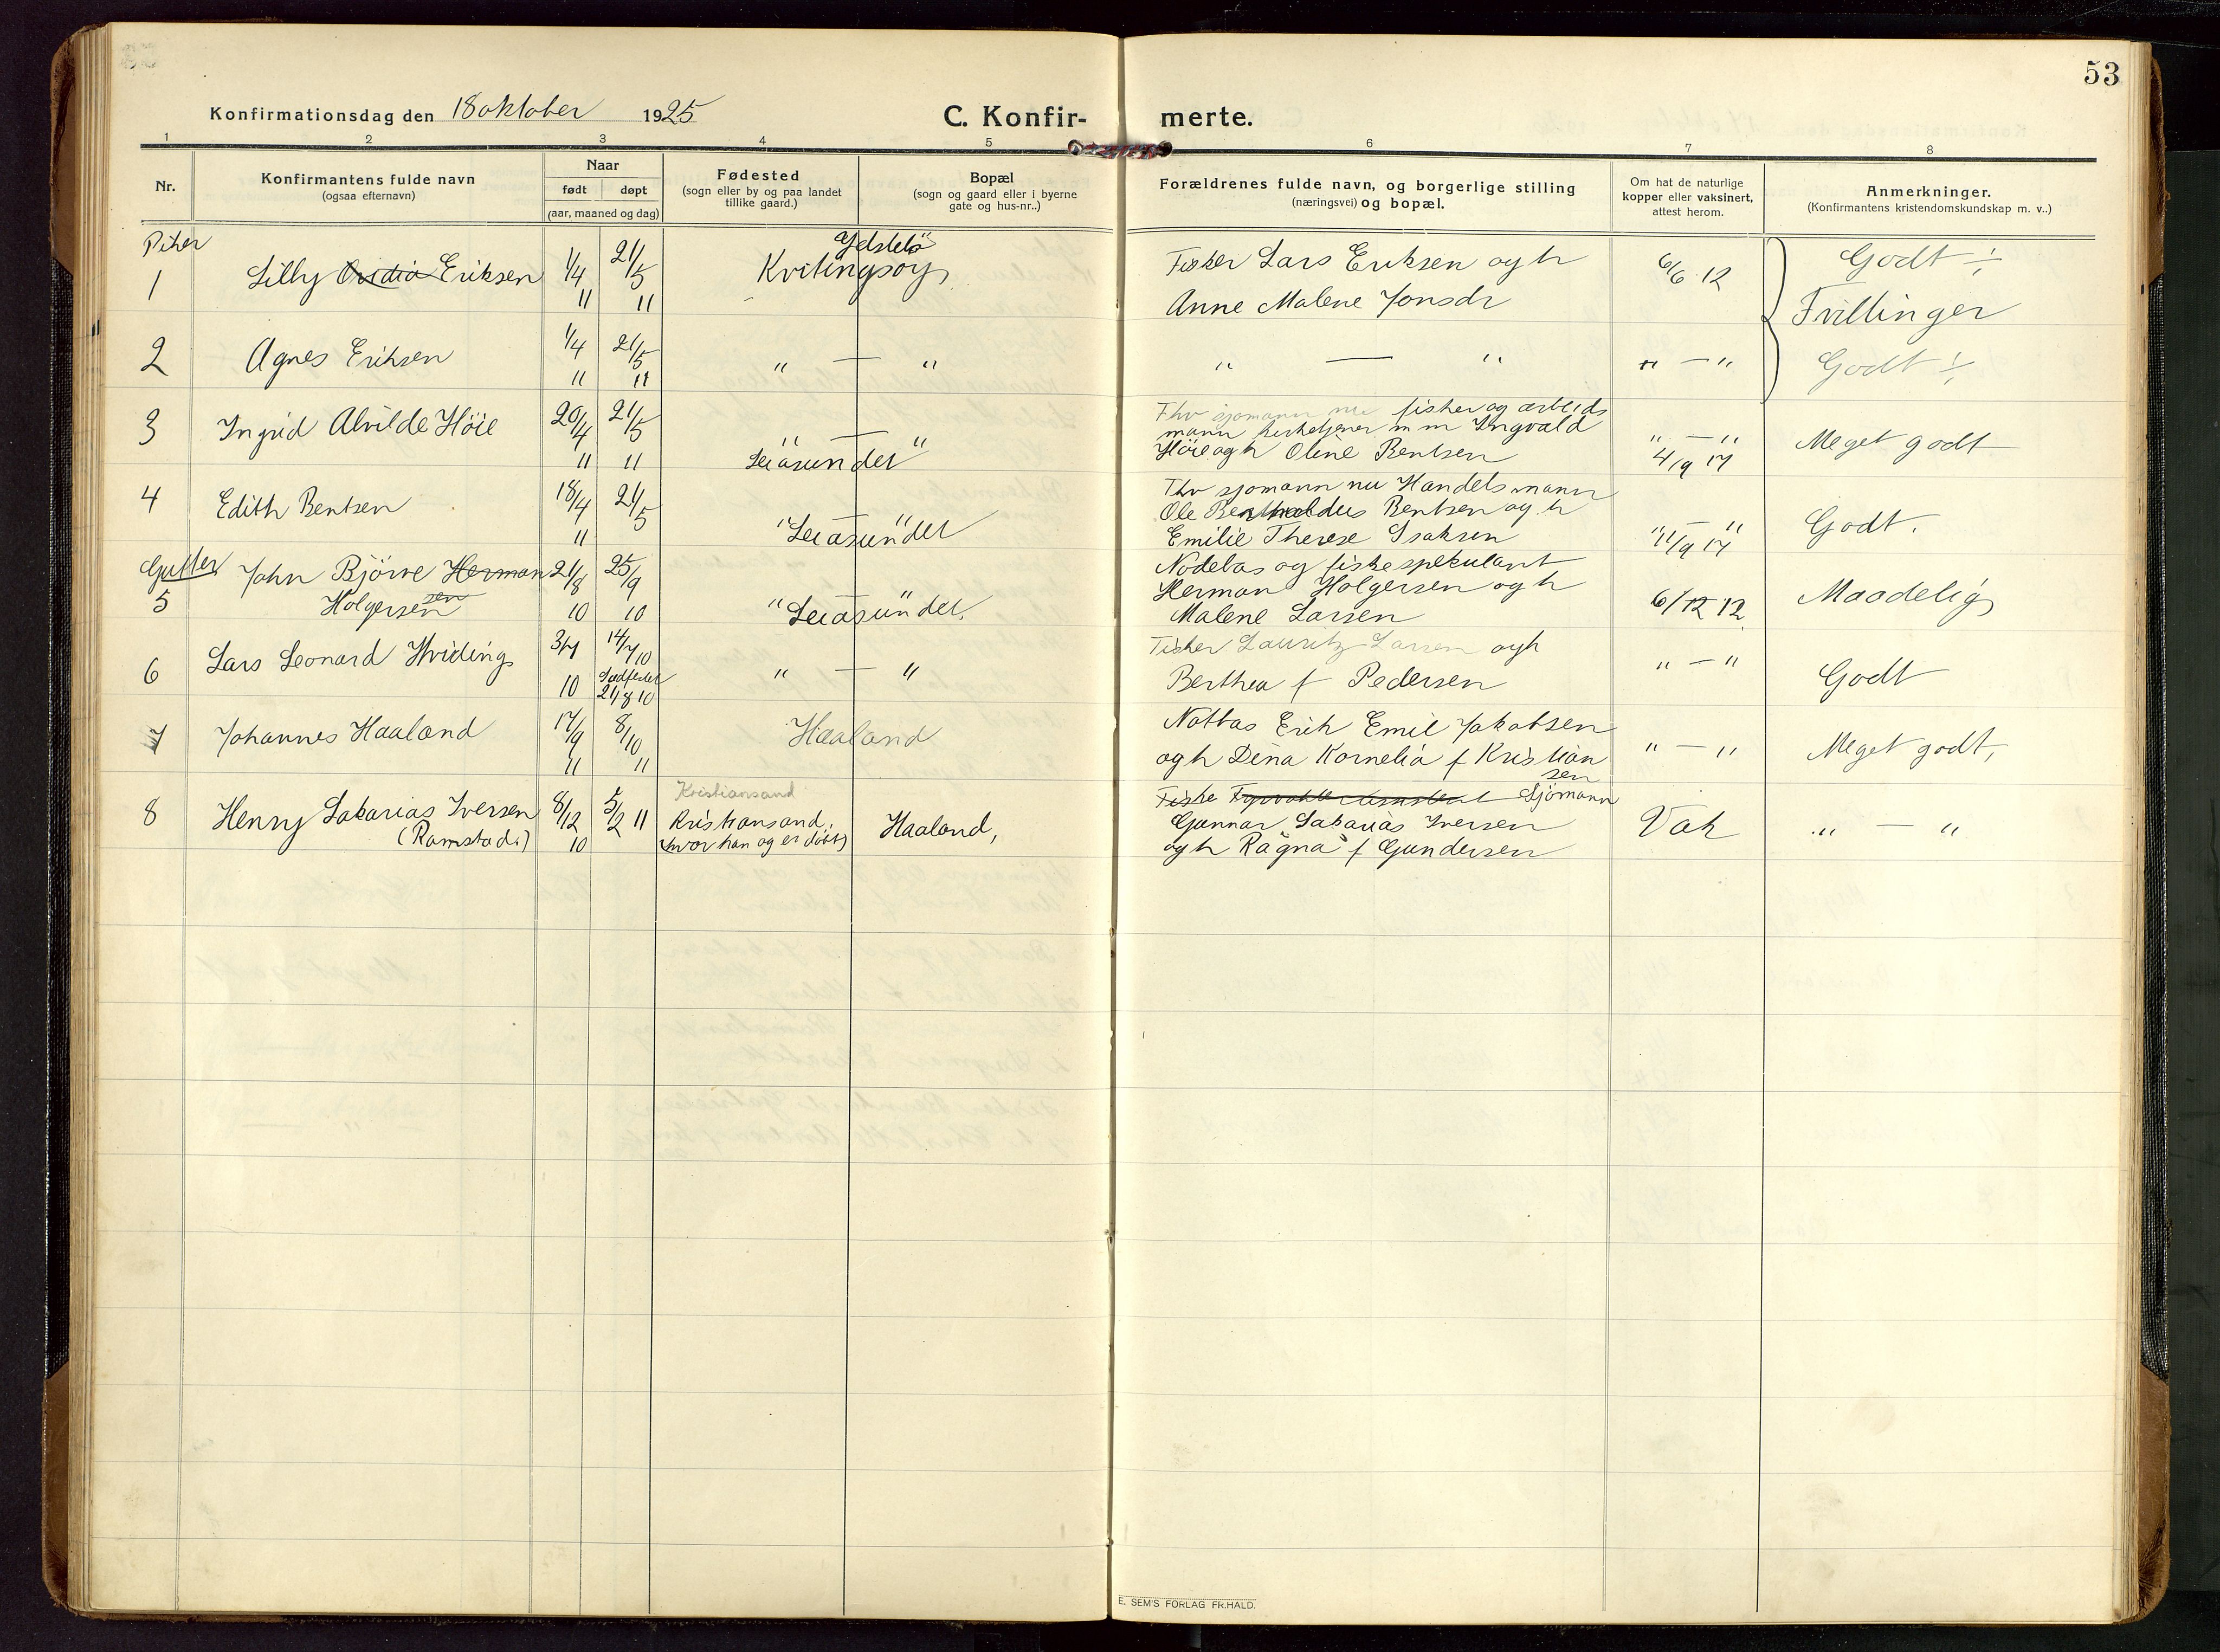 53
Konfirmationsdag den 18 oktober 1925
C. Konfir- merte.
1 2 3 4 5 6 7 8
Nr.
Konfirmantens fulde navn
(ogsaa efternavn)
Naar
født døpt
(aar, maaned og dag)
Fødested
(sogn eller by og paa landet
tillike gaard.)
Bopæl
(sogn og gaard eller i byerne
gate og hus-nr..)
Forældrenes fulde navn, og borgerlige stilling
(næringsvei) og bopæl.
Om hat de naturlige
kopper eller vaksinert,
attest herom.
Anmerkninger.
(Konfirmantens kristendomskundskap m. v..)
Piker
1 Lilly Ovidia Eriksen 1/4 11 21/5 11 Ydstebö Kvitingsöy
Fisker Lars Eriksen og h
Anne Malene Jonsdr
6/6 12 Godt ÷
Tvillinger
2 Agnes Eriksen 1/4 11 21/5 11 " — " " — " " — " Godt ÷
3 Ingrid Alvilde Höie 20/4 11 21/5 11 " — " Leiasundet
Fhv sjomann nu fisker og arbeids
mann kirketjener m m Ingvald
Höie og h Oline Bentsen
" — " 4/9 17 Meget godt
4 Edith Bentsen 18/4 11 21/5 " — " Leiasundet
Fhv sjomann nu Handelsmann
Ole Berthaldus Bentsen og h
Emilie Therese Isaksen
" — " 11/9 17 Godt.
Gutter
5 John Björve Herman
sen
Holgersen
21/8 10 25/9 10 " — " Leiasundet
Nodebas og fiskespekulant
Herman Holgersen og h
Malene Larsen
6/12 12 Maadelig
6 Lars Leonard Hviding 3/7 10 14/7 10
Stadfestet
21/8 10
" — "
Fisker Lauritz Larsen og h
Berthea f Pedersen
" — " Godt
7 Johannes Haaland 17/9 11 8/10 11 Haaland
Notbas Erik Emil Jakobsen
og h Dina Kornelia f Kristian
sen
" — " Meget godt,
8 Henry Sakarias Iversen
(Ramstad.)
8/12 10 5/2 11
Kristiansand
Kristiansand,
hvor han og er döbt)
Haaland,
Fiske Sjömann
Gunnar Sakarias Iversen
og h Ragna f Gundersen
Vak " — "
E. SEM'S FORLAG FR.HALD.